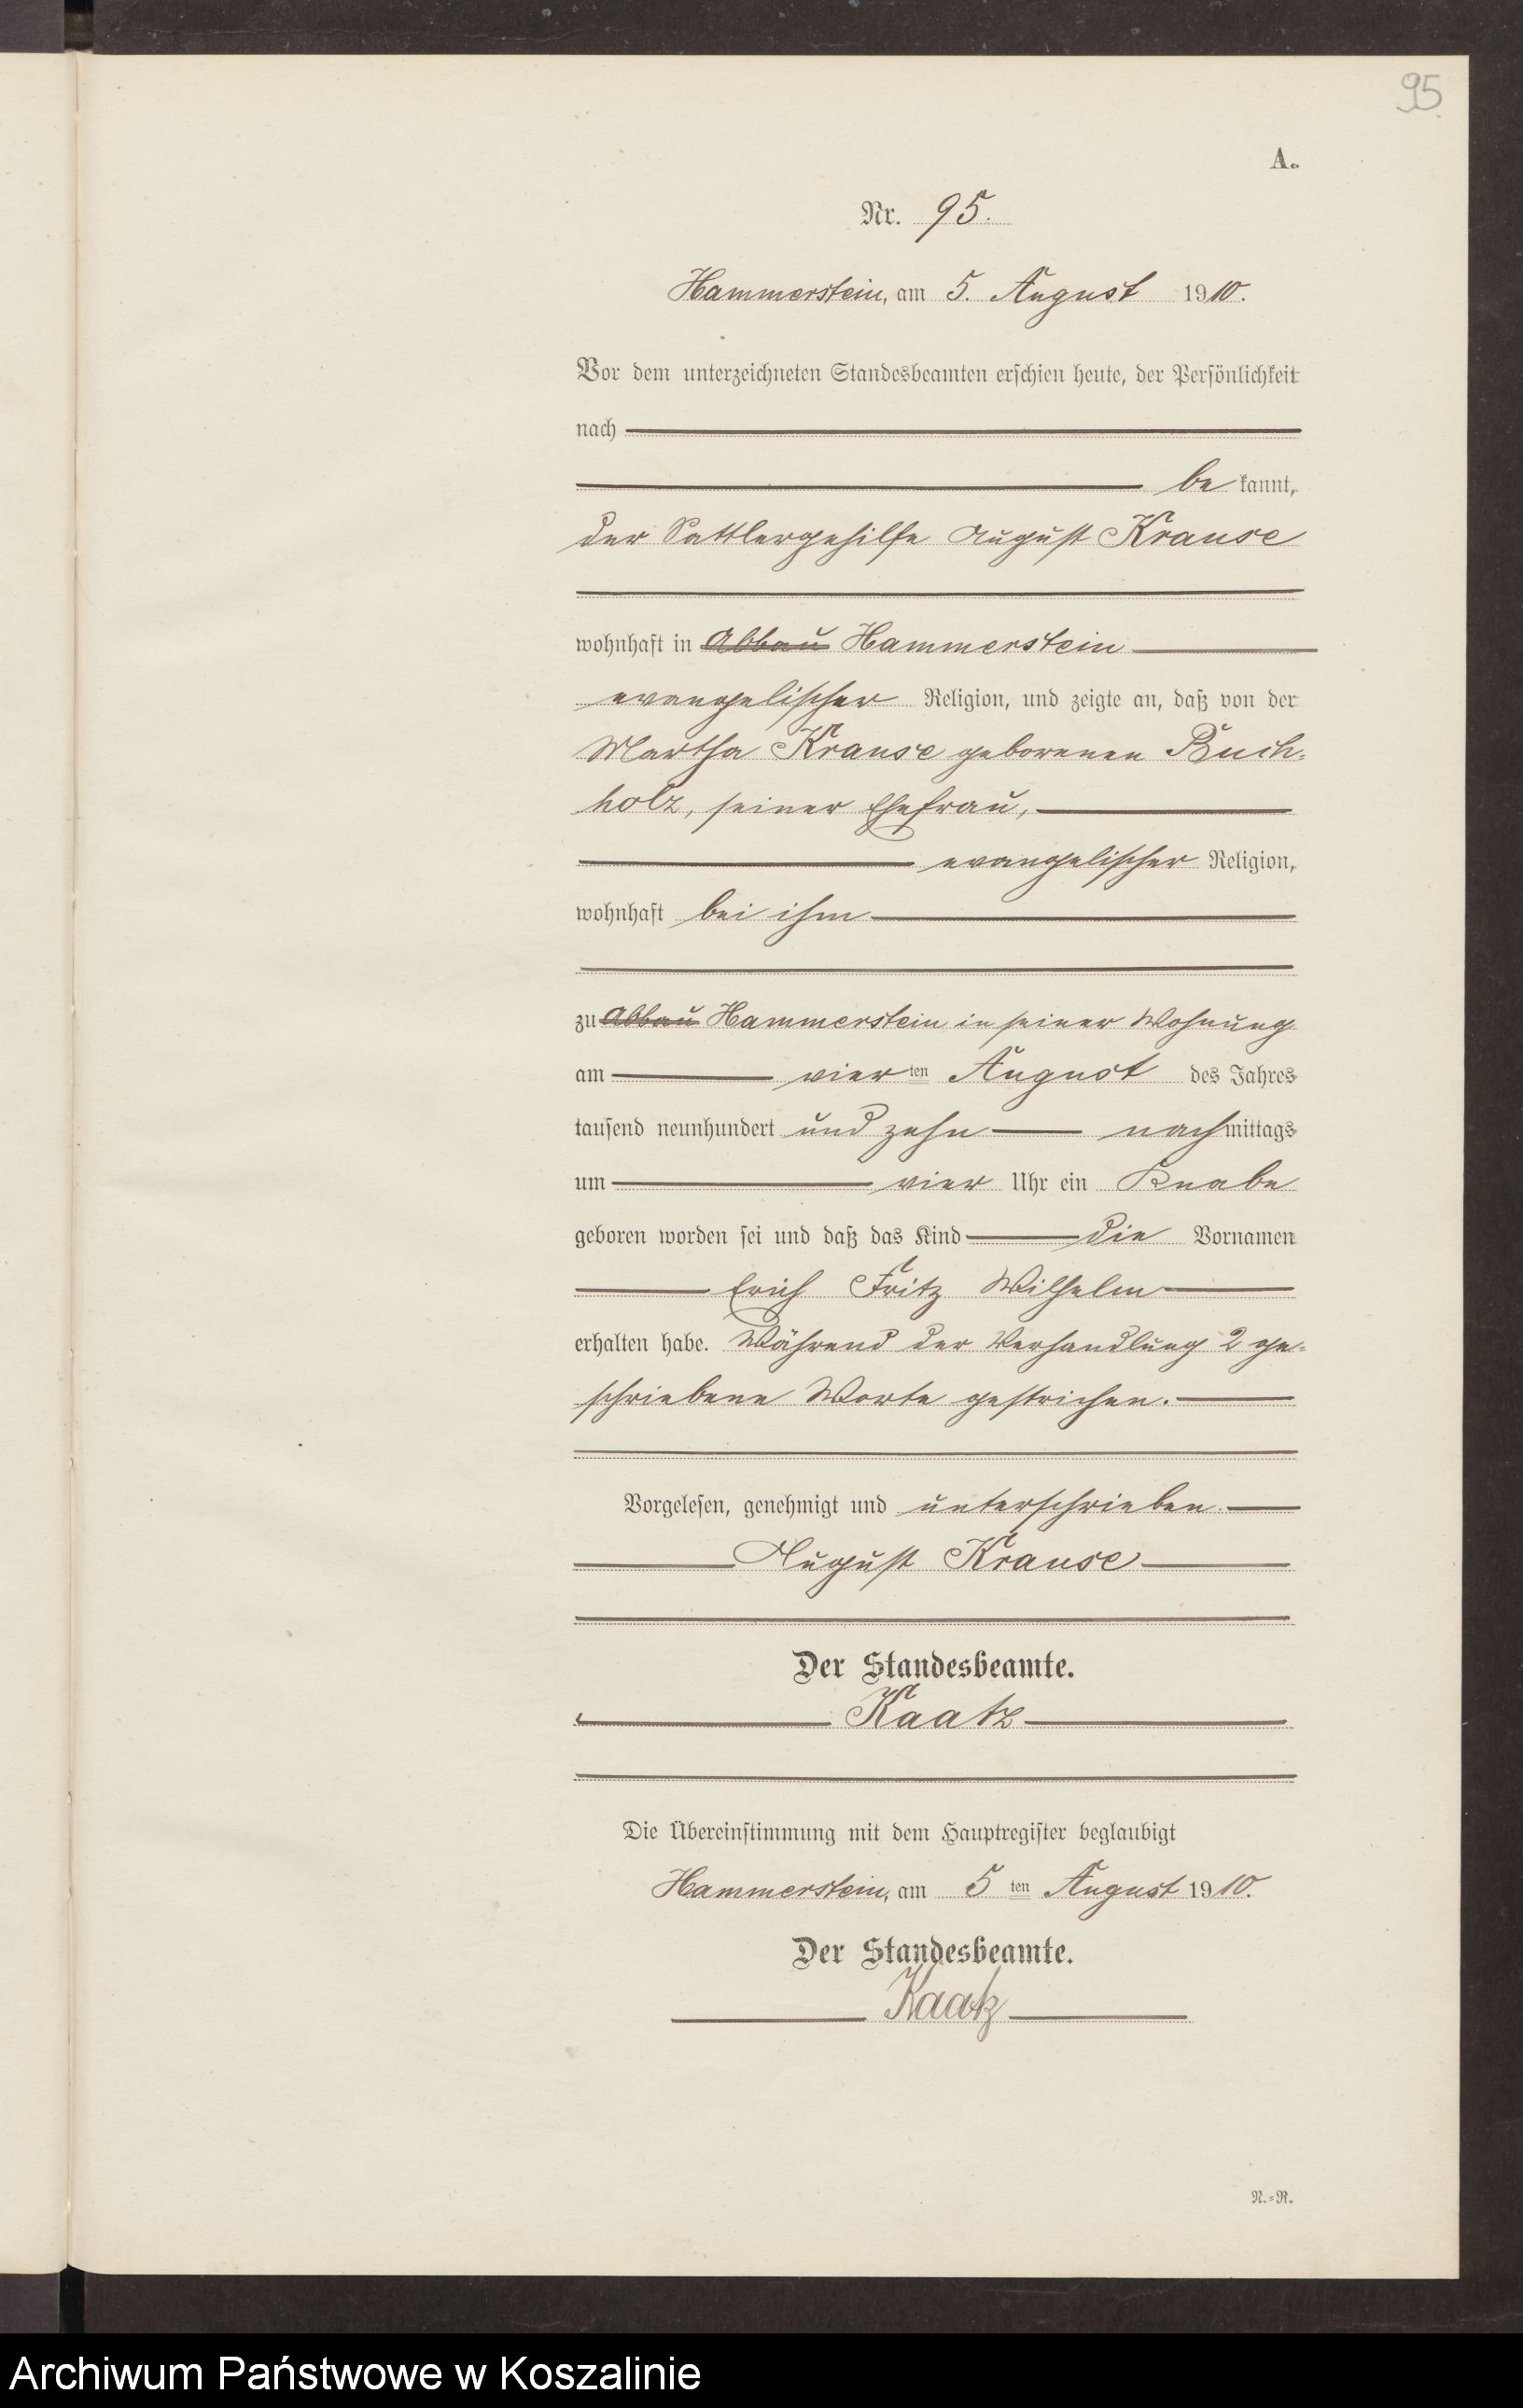 95.
A.
Nr. 95.
Hammerstein, am 5. August 1910.
Vor dem unterzeichneten Standesbeamten erschien heute, der Persönlichkeit
nach
be kannt,
der Sattlergehilfe August Krause
wohnhaft in Abbau Hammerstein
evangelischer Religion, und zeigte an, daß von der
Martha Krause geborenen Buch-
holz, seiner Ehefrau,
evangelischer Religion,
wohnhaft bei ihm
zu Abbau Hammerstein in seiner Wohnung
am vier ten August des Jahres
tausend neunhundert und zehn nachmittags
um vier Uhr ein Knabe
geboren worden sei und daß das Kind die Vornamen
Erich Fritz Wilhelm
erhalten habe. Während der Verhandlung 2 ge-
schriebene Worte gestrichen.
Vorgelesen, genehmigt und unterschrieben.
August Krause
Der Standesbeamte.
Kaatz
Die Übereinstimmung mit dem Hauptregister beglaubigt
Hammerstein, am 5 ten August 1910.
Der Standesbeamte.
Kaatz
N.=R.
Archiwum Państwowe w Koszalinie